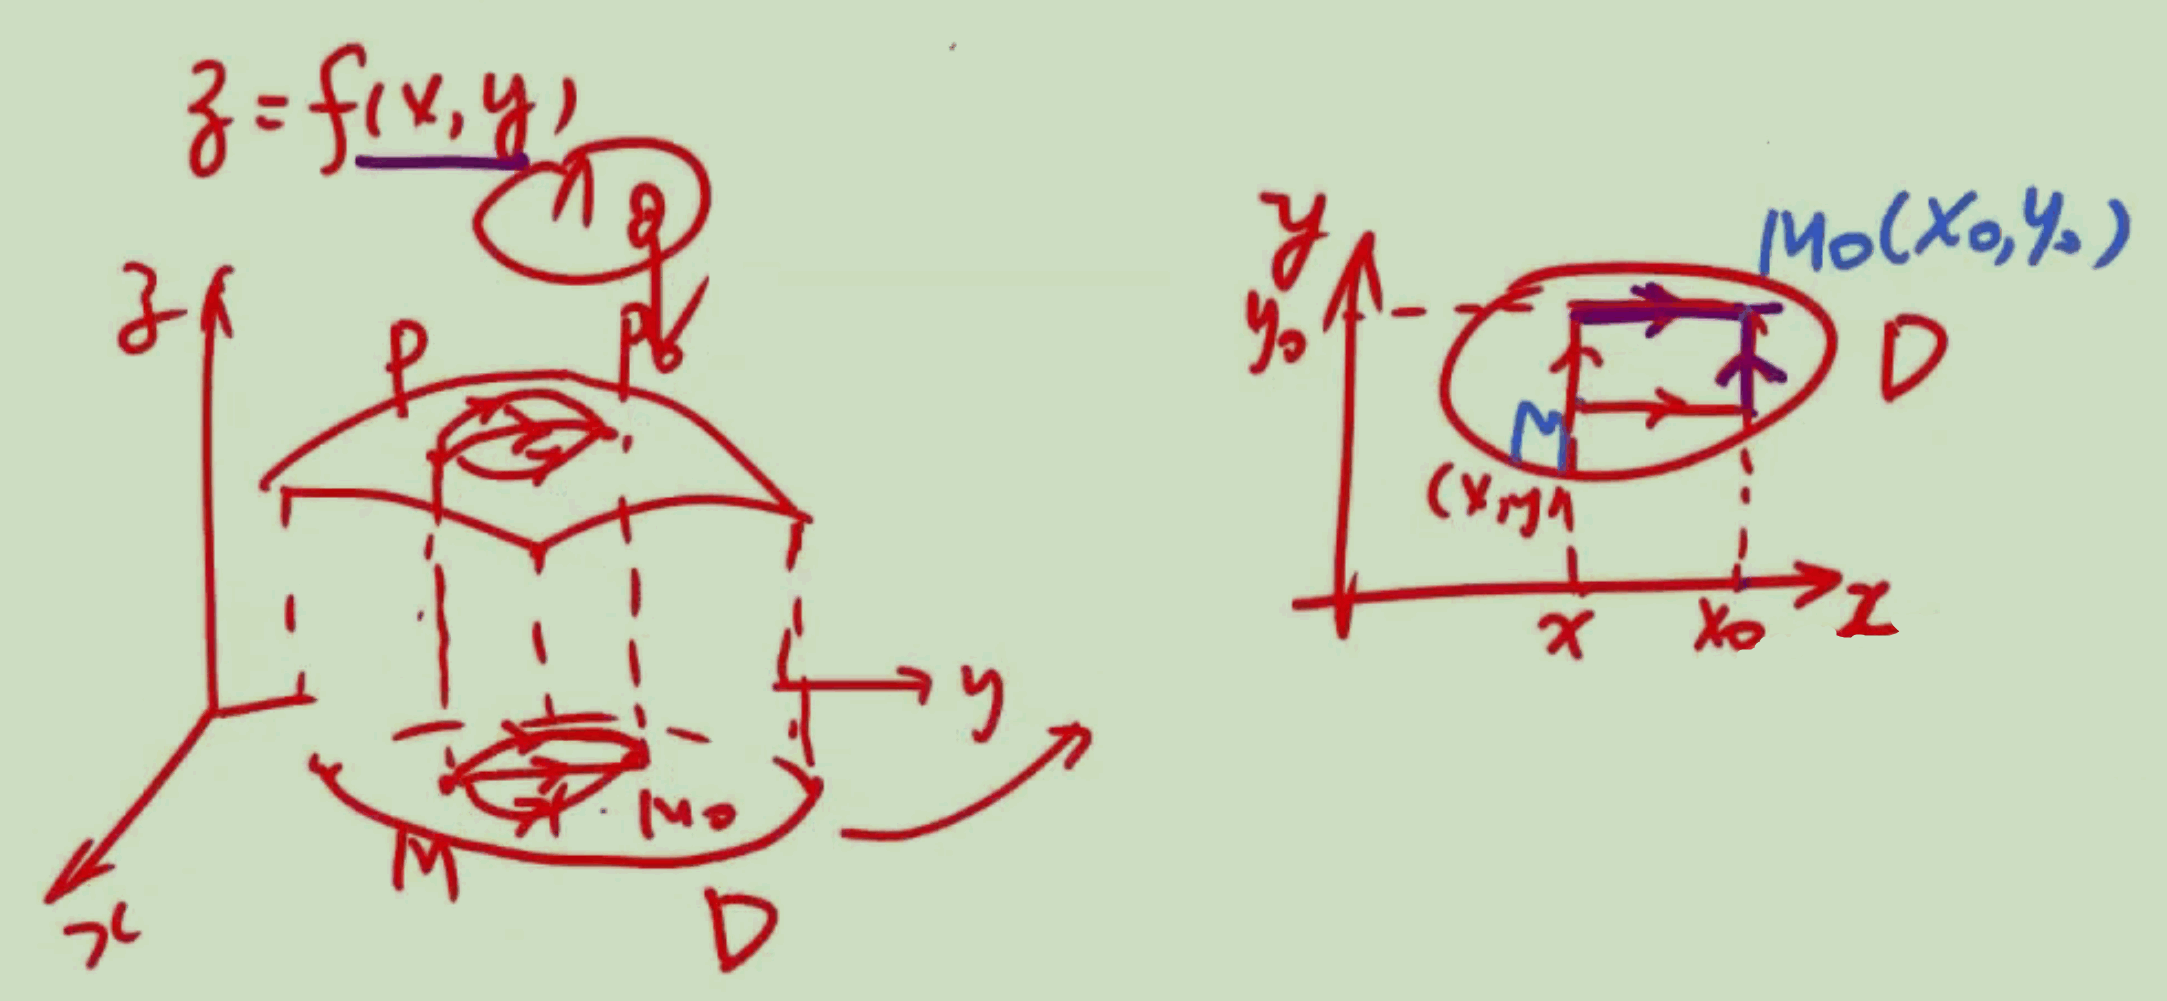 z = f(x, y)
z
P
P₀
y
x
M
M₀
D
y
M₀(x₀, y₀)
y₀
D
M
(x, y)
x
x₀
x